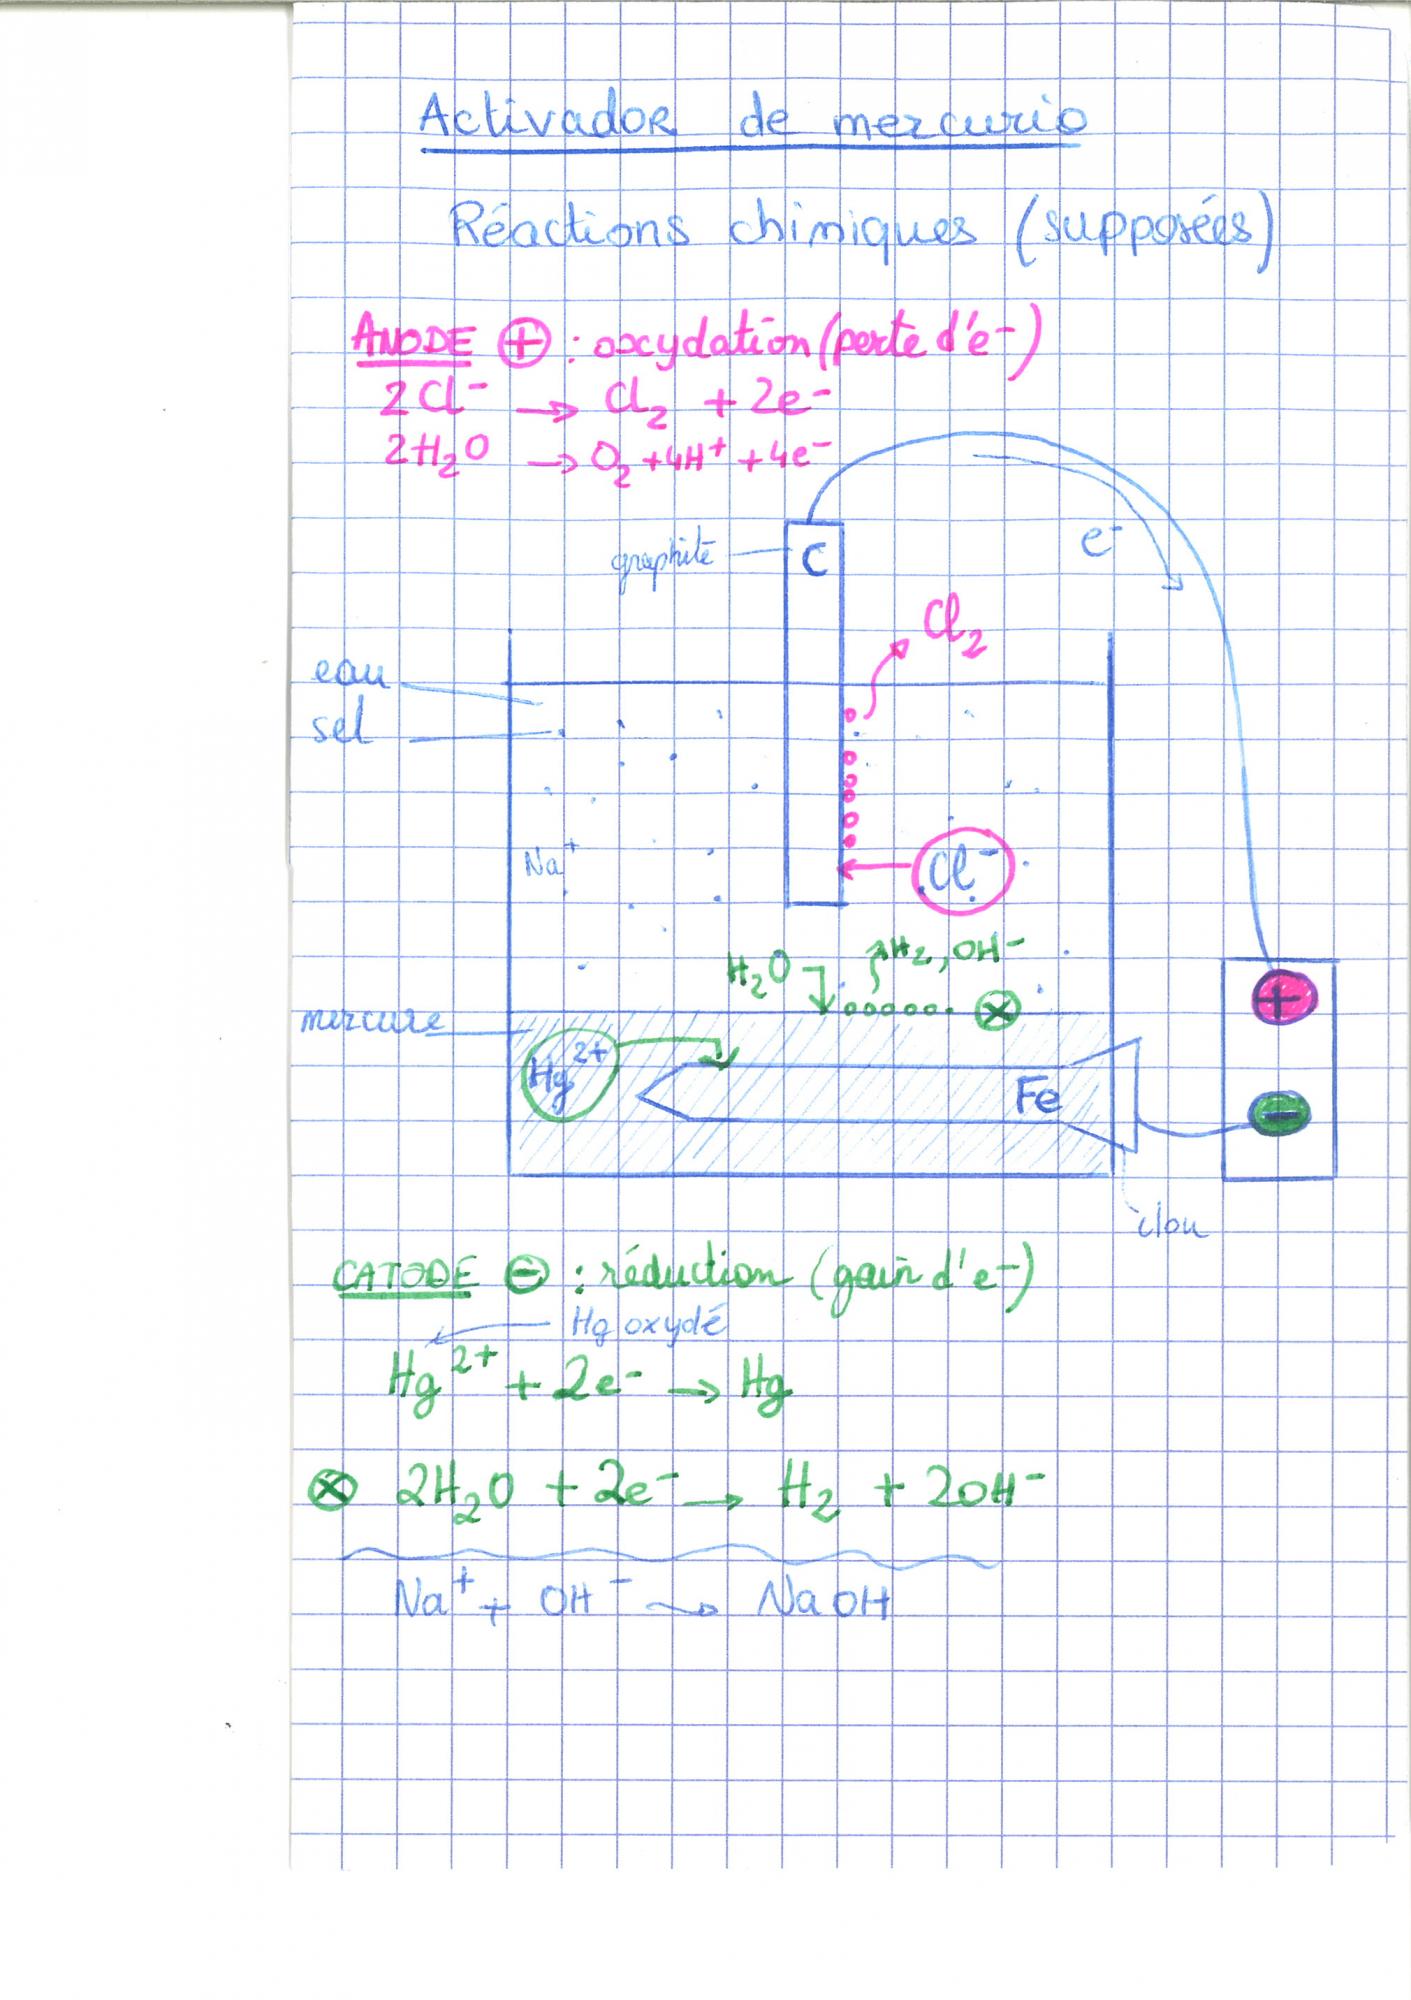 Activador de mercurio
Réactions chimiques (supposées)
ANODE ⊕ : oxydation (perte d'e⁻)
2Cl⁻ → Cl₂ + 2e⁻
2H₂O → O₂ + 4H⁺ + 4e⁻
graphite
C
e⁻
Cl₂
eau
sel
Na⁺
Cl⁻
H₂O
H₂, OH⁻
⊗
+
mercure
Hg²⁺
Fe
−
clou
CATODE ⊖ : réduction (gain d'e⁻)
Hg oxydé
Hg²⁺ + 2e⁻ → Hg
⊗ 2H₂O + 2e⁻ → H₂ + 2OH⁻
Na⁺ + OH⁻ → NaOH